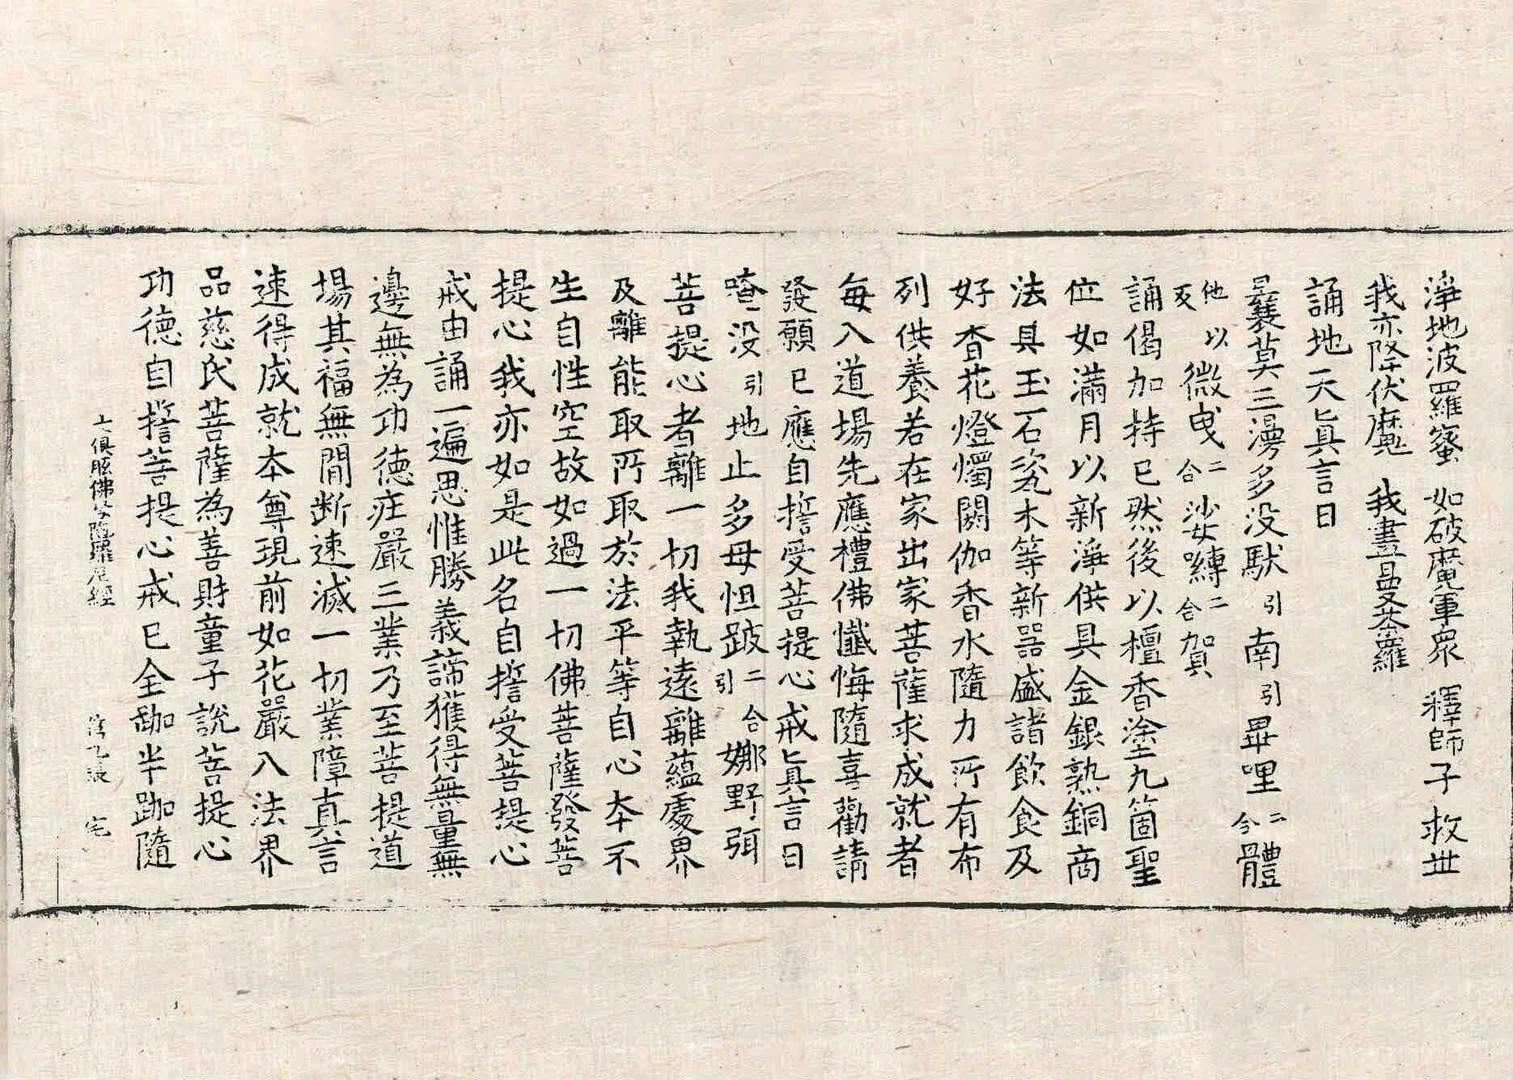 淨地波羅蜜 如破魔軍衆 釋師子救世
我亦降伏魔 我畫曼荼羅
誦地天真言曰
曩莫三漫多没馱引南引畢哩二合體
他以反微曳二合娑嚩二合賀
誦偈加持已然後以檀香塗九箇聖
位如滿月以新淨供具金銀熟銅商
法具玉石瓷木等新器盛諸飲食及
好香花燈燭閼伽香水隨力所有布
列供養若在家出家菩薩求成就者
每入道場先應禮佛懺悔隨喜勸請
發願已應自誓受菩提心戒真言曰
唵没引地止多母怛跛二合引娜野弭
菩提心者離一切我執遠離蘊處界
及離能取所取於法平等自心本不
生自性空故如過一切佛菩薩發菩
提心我亦如是此名自誓受菩提心
戒由誦一遍思惟勝義諦獲得無量無
邊無為功德莊嚴三業乃至菩提道
場其福無間断速滅一切業障真言
速得成就本尊現前如花嚴入法界
品慈氏菩薩為善財童子說菩提心
功德自誓菩提心戒已全跏半跏隨
七俱胝佛母陁羅尼經 第九張 宅